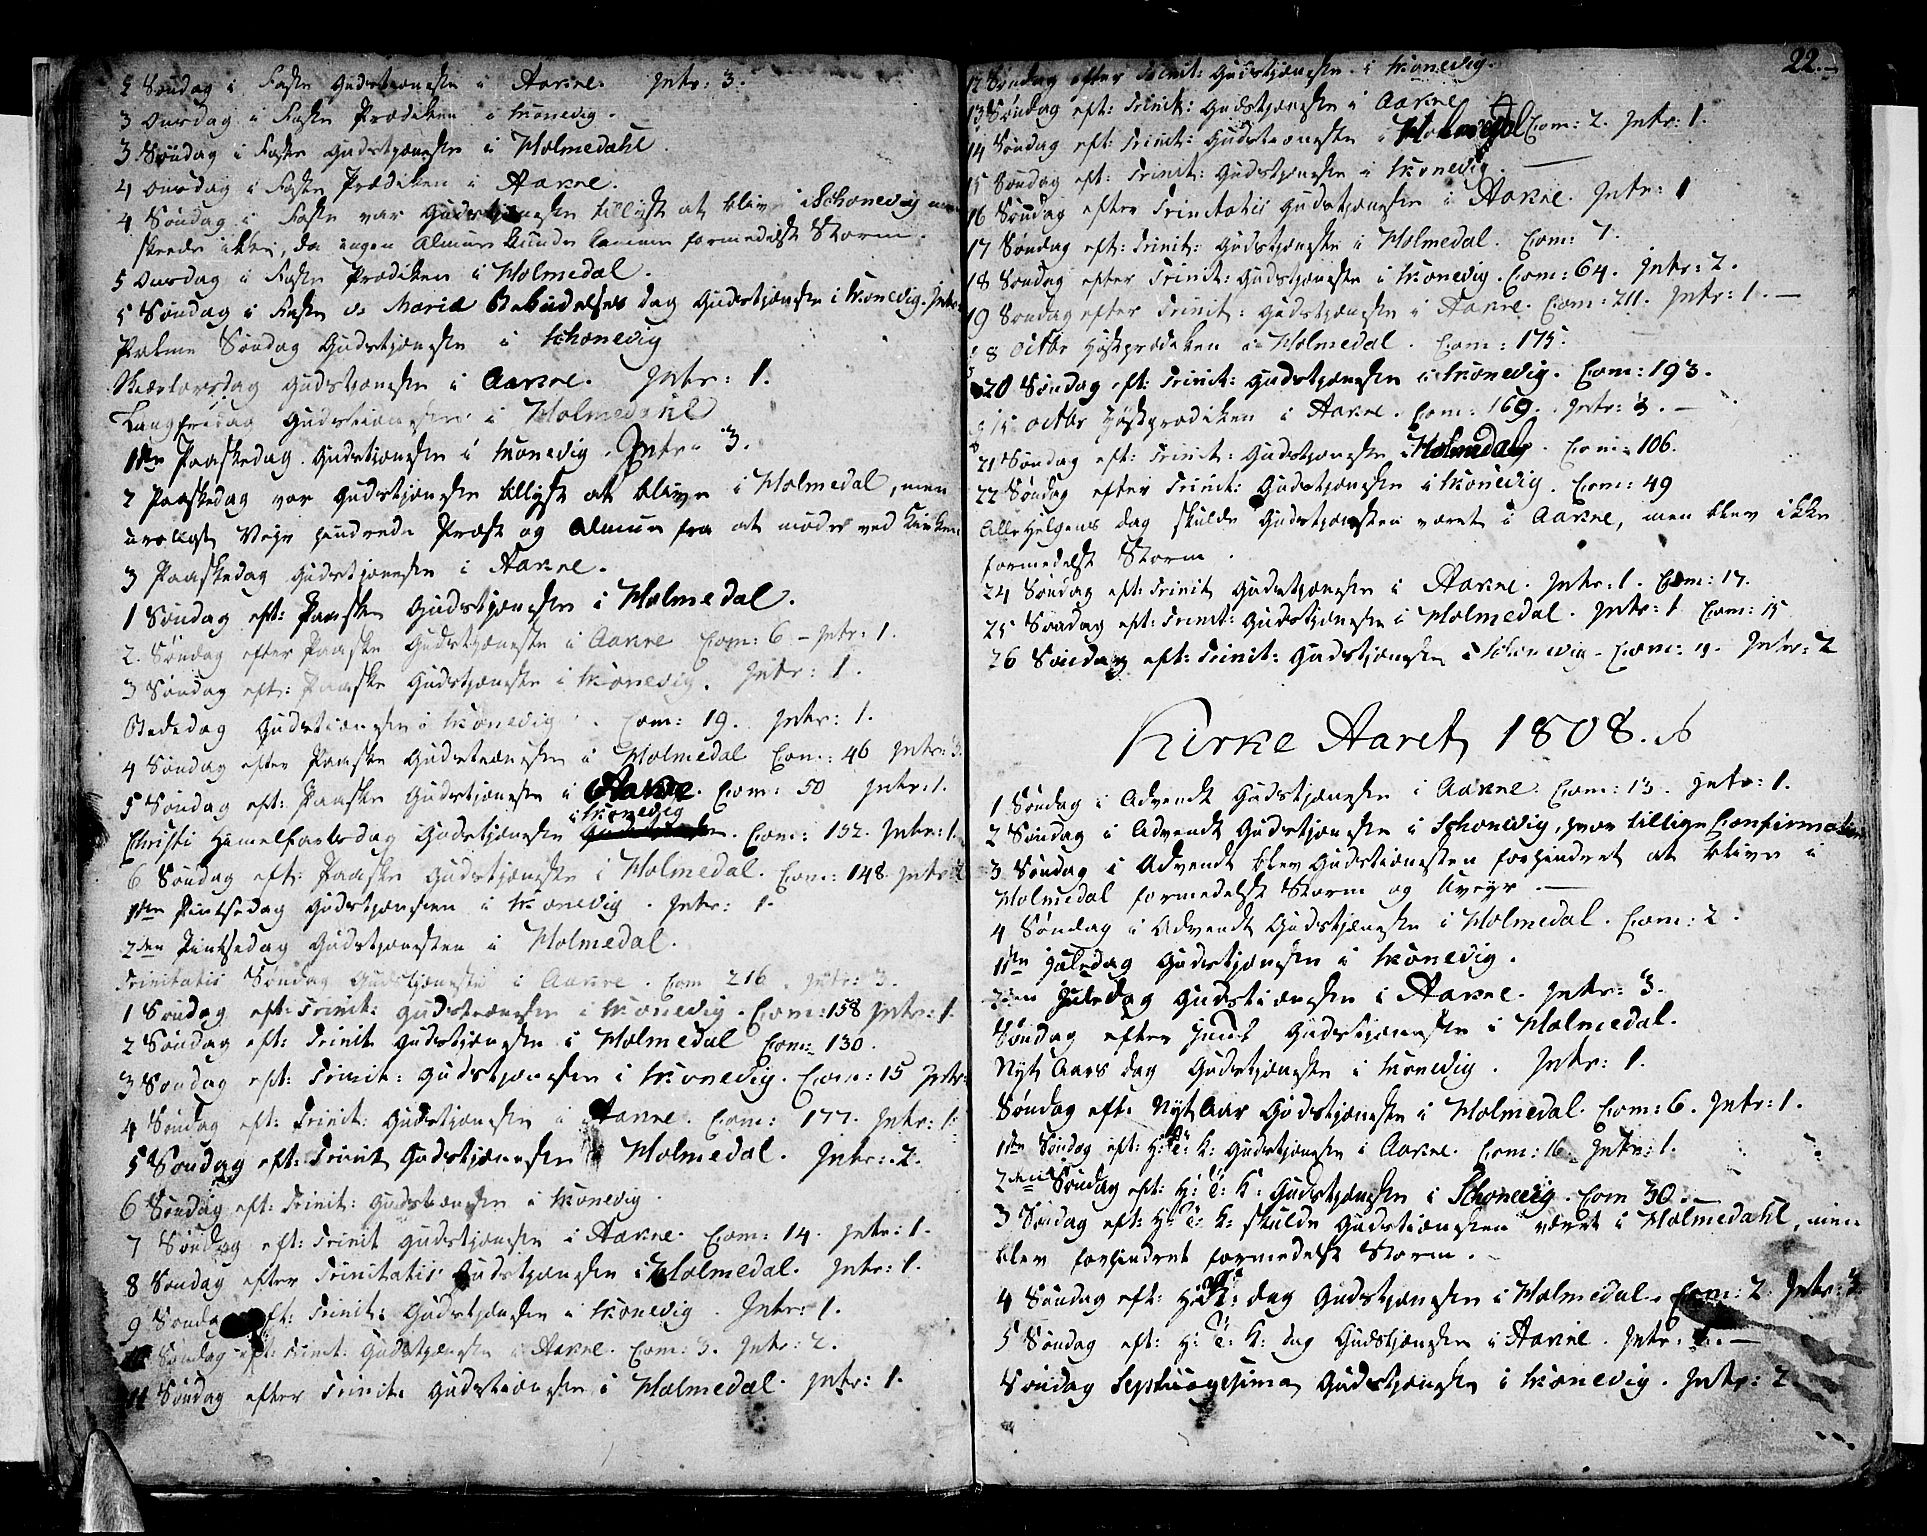 2 Søndag i Faste Gudstjæneste i Aakre. Intr: 3.
3 Onsdag i Faste Prædiken i Skonevig.
3 Søndag i Faste Gudstjæneste i Holmedahl.
4 Onsdag i Faste Prædiken i Aakre.
4 Søndag i Faste var Gudstjænesten tillyst at blive i Schonevig men
skeede ikke, da ingen Almue kunde komme formedelst Storm.
5 Onsdag i Faste Prædiken i Holmedal.
5 Søndag i Faste Mariæ Bebudelses dag Gudstjæneste i Skonevig. Intr:
Palme Søndag Gudstjæneste i Schonevig
Skiærtorsdag Gudstjæneste i Aakre. Intr: 1.
Langfredag Gudstiæneste i Holmedahl
1ste Paaskedag Gudstiæneste i Skonevig. Intr: 3.
2 Paaskedag var Gudstjæneste tillyst at blive i Holmedal, men
uroligt Vejr hindrede Præst og Almue fra at møde ved Kirken.
3 Paaskedag Gudstjæneste i Aakre.
1 Søndag eft: Paaske Gudstjæneste i Holmedal.
2. Søndag efter Paaske Gudstjæneste i Aakre Com: 6 – Intr: 1.
3 Søndag eft: Paaske Gudstjæneste i Skonevig. Intr: 1.
Bededag Gudstiæneste i Skonevig. Com: 19. Intr: 1.
4 Søndag efter Paaske Gudstiæneste i Holmedal Com: 46 Intr: 3.
5 Søndag eft: Paaske Gudstjæneste i Aakre. Com: 50 Intr: 1.
Christi Himelfartsdag Gudstjæneste i Skonevig. Com: 132. Intr: 1.
6 Søndag eft: Paaske Gudstjæneste i Holmedal. Com: 148. Intr:
1ste Pintsedag Gudstjænesten i Skonevig. Intr: 1.
2den Pintsedag Gudstjænesten i Holmedal.
Trinitatis Søndag Gudstjæneste i Aakre. Com 216. Intr: 3.
1 Søndag eft: Trinit: Gudstiæneste i Skonevig. Com: 158 Intr: 1.
2 Søndag eft: Trinit Gudstjæneste i Holmedal Com: 130.
3 Søndag eft: Trinit: Gudstjæneste i Skonevig. Com: 15 Intr:
4 Søndag eft: Trinit: Gudstjæneste i Aakre. Com: 177. Intr: 1.
5 Søndag eft: Trinit Gudstjæneste i Holmedal. Intr: 2.
6 Søndag eft: Trinit: Gudstiæneste i Skonevig.
7 Søndag eft: Trinit Gudstjæneste i Aakre. Com: 14. Intr: 1.
8 Søndag efter Trinitatis Gudstjæneste i Holmedal. Intr: 1.
9 Søndag eft: Trinit: Gudstjæneste i Skonevig. Intr: 1.
10 Søndag eft: Trinit: Gudstjæneste i Aakre. Com: 3. Intr: 2.
11 Søndag efter Trinit: Gudstiæneste i Holmedal. Intr: 1.
22.
12 Søndag efter Trinit: Gudstjæneste i Skonevig.
13 Søndag eft: Trinit: Gudstjæneste i Aakre
14 Søndag eft: Trinit: Gudstiæneste i Holmedal Com: 2. Intr: 1.
15 Søndag eft: Trinit: Gudstjæneste i Skonevig.
16 Søndag efter Trinitatis Gudstjæneste i Aakre. Intr: 1
17 Søndag eft: Trinit: Gudstjæneste i Holmedal. Com: 7.
18 Søndag efter Trinit: Gudstjæneste i Skonevig. Com: 64. Intr: 2.
19 Søndag efter Trinit: Gudstjæneste i Aakre. Com: 211. Intr: 1. –
8 Octbr Høstprædiken i Holmedal. Com: 175.
20 Søndag eft: Trinit: Gudstjæneste i Skonevig. Com: 193.
15 Octbr Høstprædiken i Aakre. Com: 169. Intr: 3. –
21 Søndag eft: Trinit: Gudstjæneste i Holmedal. Com: 106.
22 Søndag efter Trinit: Gudstjæneste i Skonevig. Com: 49
Alle Helgens dag skulde Gudstjænesten været i Aakre, men blev ikke
formedelst Storm.
24 Søndag eft: Trinit Gudstjæneste i Aakre. Intr: 1. Com: 17.
25 Søndag eft: Trinit: Gudstjæneste i Holmedal. Intr: 1 Com: 15
26 Søndag eft: Trinit: Gudstjæneste i Schonevig. Com: 11. Intr: 2
Kirke Aaret 1808.
1 Søndag i Advendt Gudstjæneste i Aakre. Com: 13. Intr: 1.
2 Søndag i Advendt Gudstjæneste i Schonevig, hvor tillige Confirmation
3 Søndag i Advendt blev Gudstiænesten forhindret at blive i
Holmedal formedelst Storm og Uvejr. –
4 Søndag i Advendt Gudstjæneste i Holmedal. Com: 2.
1ste Juledag Gudstjæneste i Skonevig.
2den Juledag Gudstiæneste i Aakre. Intr: 3.
Søndag efter Juul Gudstjæneste i Holmedal.
Nyt Aars dag Gudstjæneste i Skonevig. Intr: 1.
Søndag eft: Nyt Aar Gudstjæneste i Holmedal. Com: 6. Intr: 1.
1ste Søndag eft: H: T: K: Gudstjæneste i Aakre. Com: 16. Intr: 1.
2den Søndag eft: H: T: K: Gudstjæneste i Schonevig. Com 30.
3 Søndag eft: H: T: K: skulde Gudstiænesten været i Holmedahl, men
blev forhindret formedelst Storm. –
4 Søndag eft: H: T: K: dag Gudstjæneste i Holmedal. Com: 2. Intr: 3
5 Søndag eft: H: T: K: dag Gudstjæneste i Aakre. Intr:
Søndag Septuagesima Gudstjæneste i Skonevig. Intr: 2.